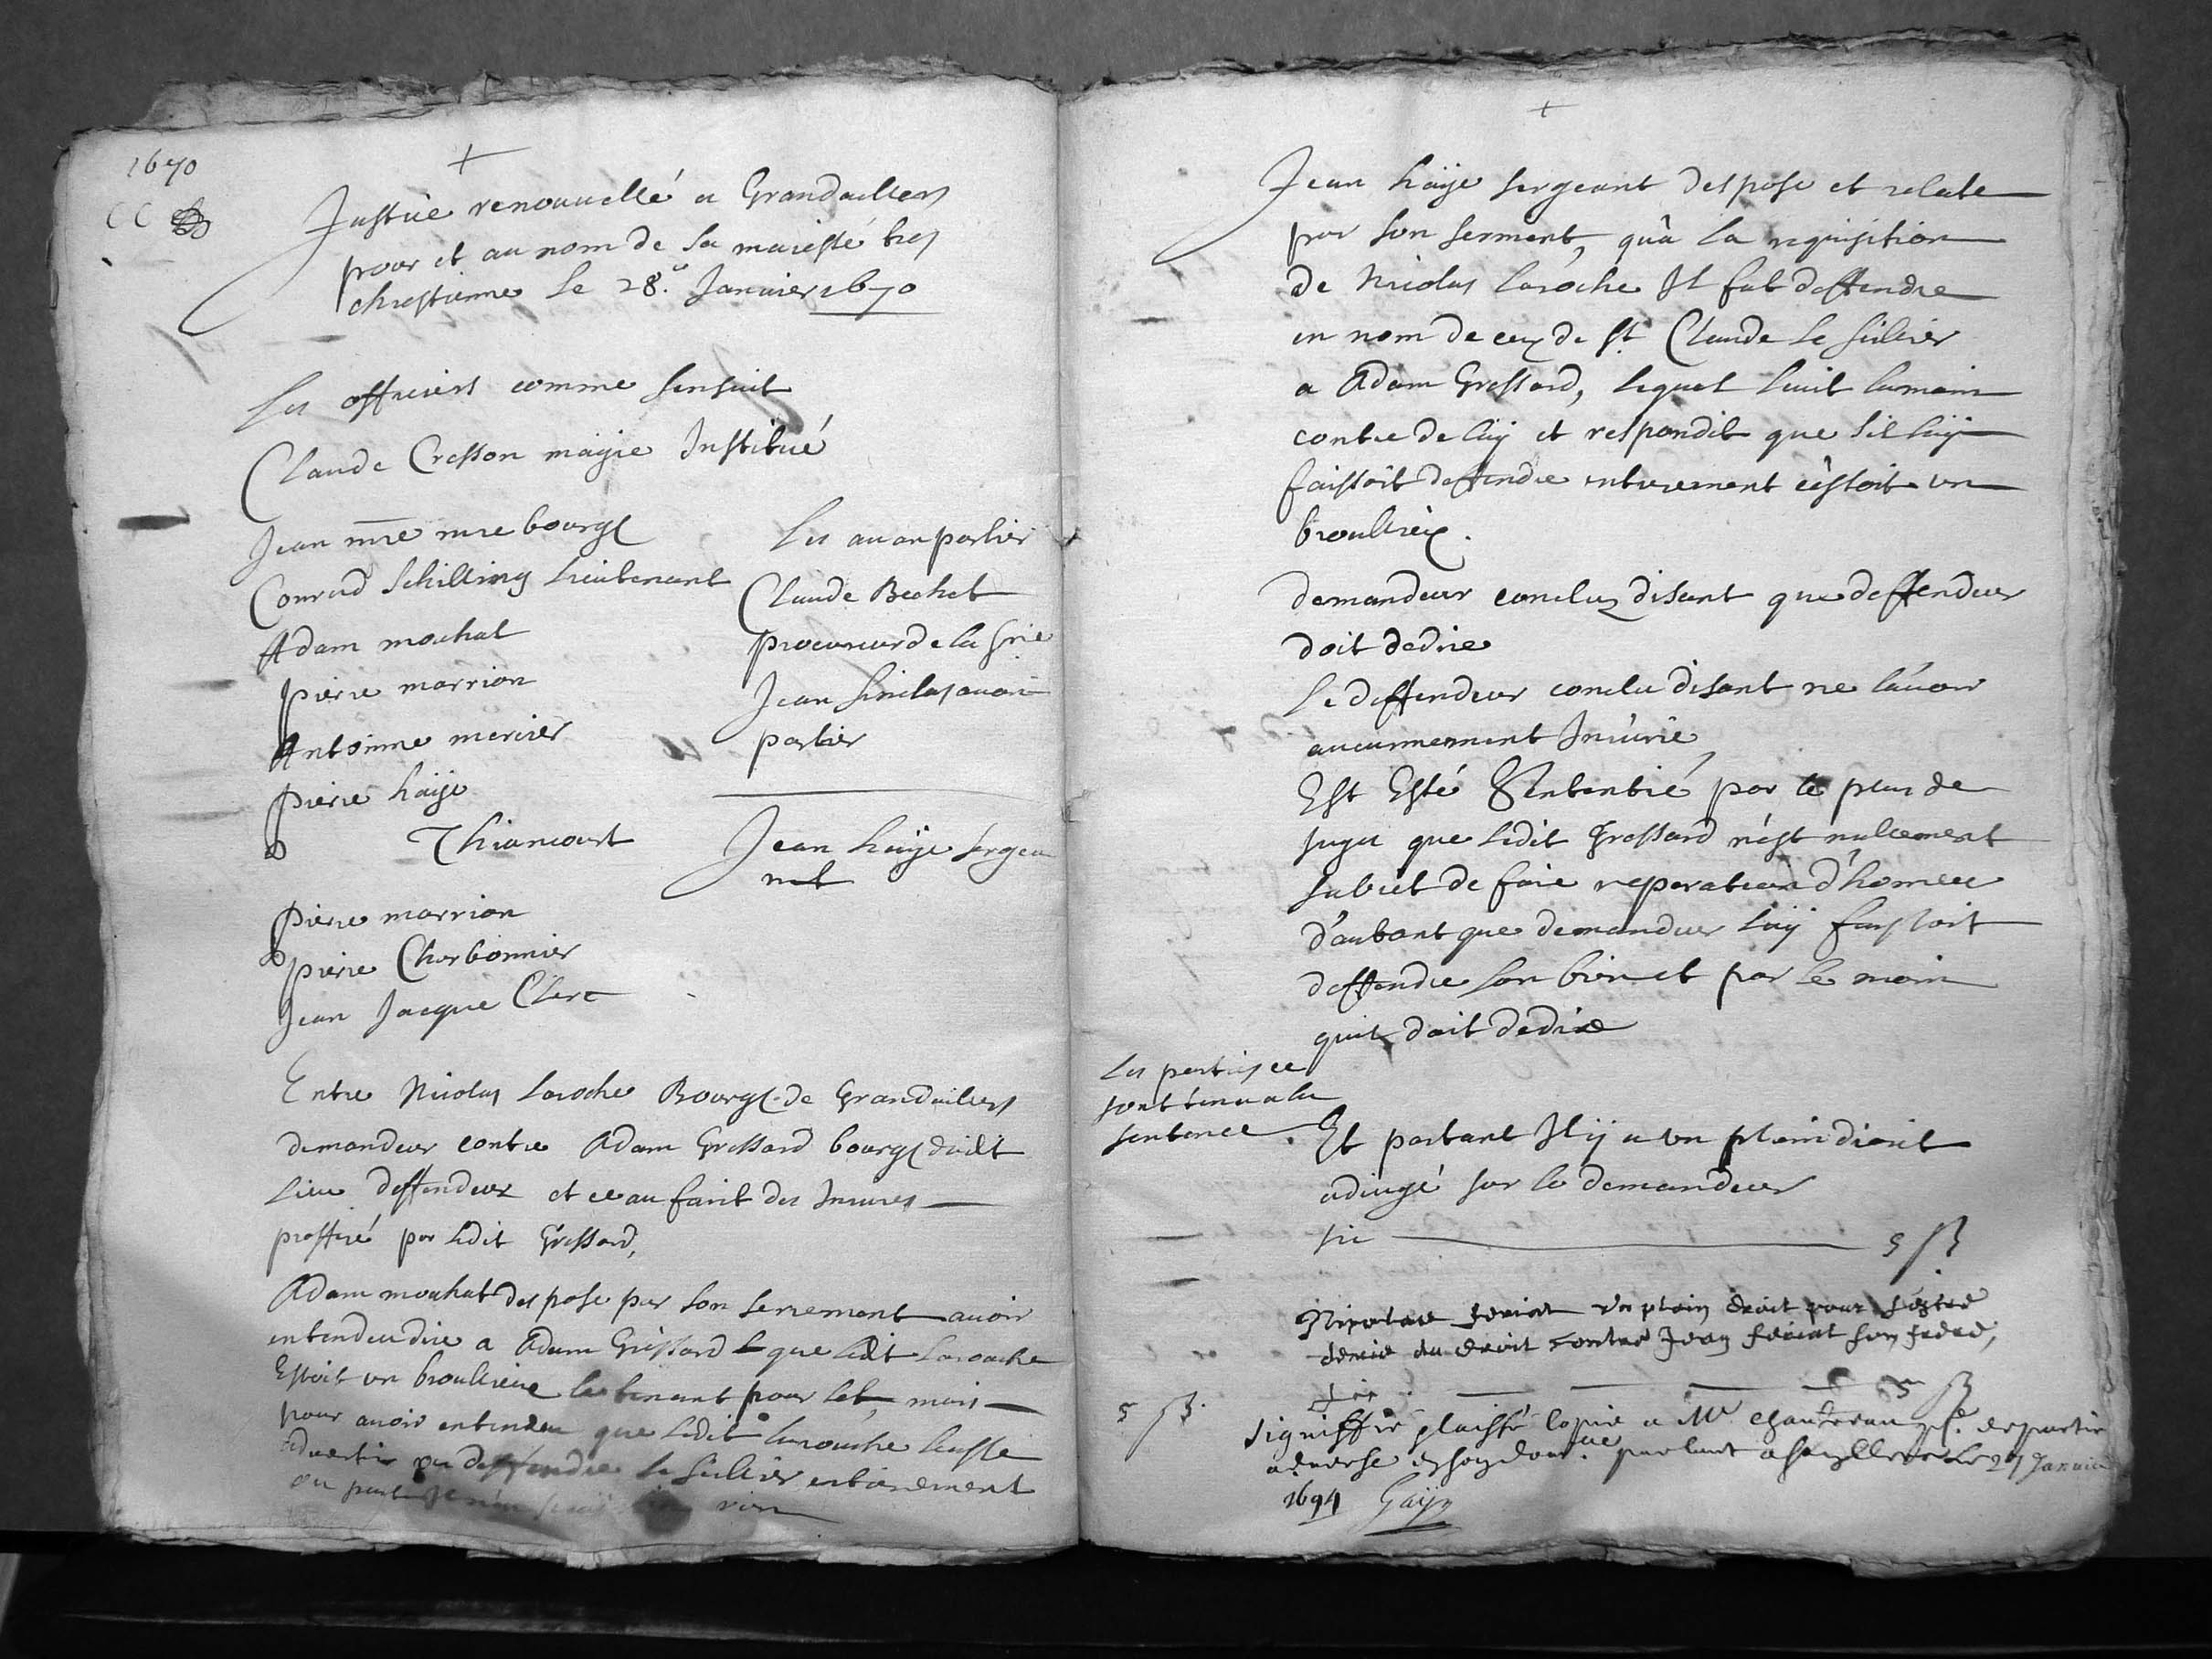 1670
CC
+
Justice renouuellé a Grandauillers
pour et au nom de sa maiesté tres
chrestienne le 28.e Januier 1670
Les officiers comme sensuit
Claude Cresson mayie Institué
Jean mre mre bourgs
Conrad Schilling Lieutenant
Adam mouhat
pierre marrion
Antoinne mercier
pierre haÿe
Thiancourt
pierre marrion
pierre Charbonnier
Jean Jacque Clerc
Les auan parlier
Claude Bechet
procureur de la srie
Jean auan
parlier
Jean haÿe sergea
nt
Entre Nicolas Laroche Bourgs. de Grandauillers
demandeur contre Adam Grossard bourgs dudit
Lieu deffendeur et ce au fait des Iniures
profferé par ledit Grossard,
Adam mouhat despose par son serrement auoir
entendeu dire a Adam Grossard que ledit Larouche
Estoit un broullieue le tenant pour tel, mais
pour auoir entendeu que ledit Larouche leusse
aduertir ou deffendre le entierement
ou rien
+
Jean haÿe sergeant despose et relate
par son serment, qu'à la requisition
de Nicolas Laroche Il fut deffendre
en nom de ceux de St Claude le
a Adam Grossard, lequel leuit la main
contre de luÿ et respondit que sil luÿ
faissoit deffendre entierement c'estoit un
broullieux.
demandeur concluz disant que deffendeur
doit dedire
Le deffendeur conclu disant ne l'auoir
aucunnemment Iniurié,
Est Esté Sententié par le plus de
juges que ledit Grossard n'est nullement
subiet de faire reparation d'honneur
d'autant que demandeur luÿ faissoit
deffendre son bien et par le moin
quil doit dedire
Les parties ce
sont tenu a la
sentence.
Et partant Il ÿ a un plain droit
adiugé sur le demandeur
sie 5 ß
Nicolas feriat vn plain droit pour s'estre
du droit contre Jean feriat son frere,
5 ß
5 ß.
Signiffié & laissé Copie a Mre de partie
aduerse parlant a Le 27 Januier
1694